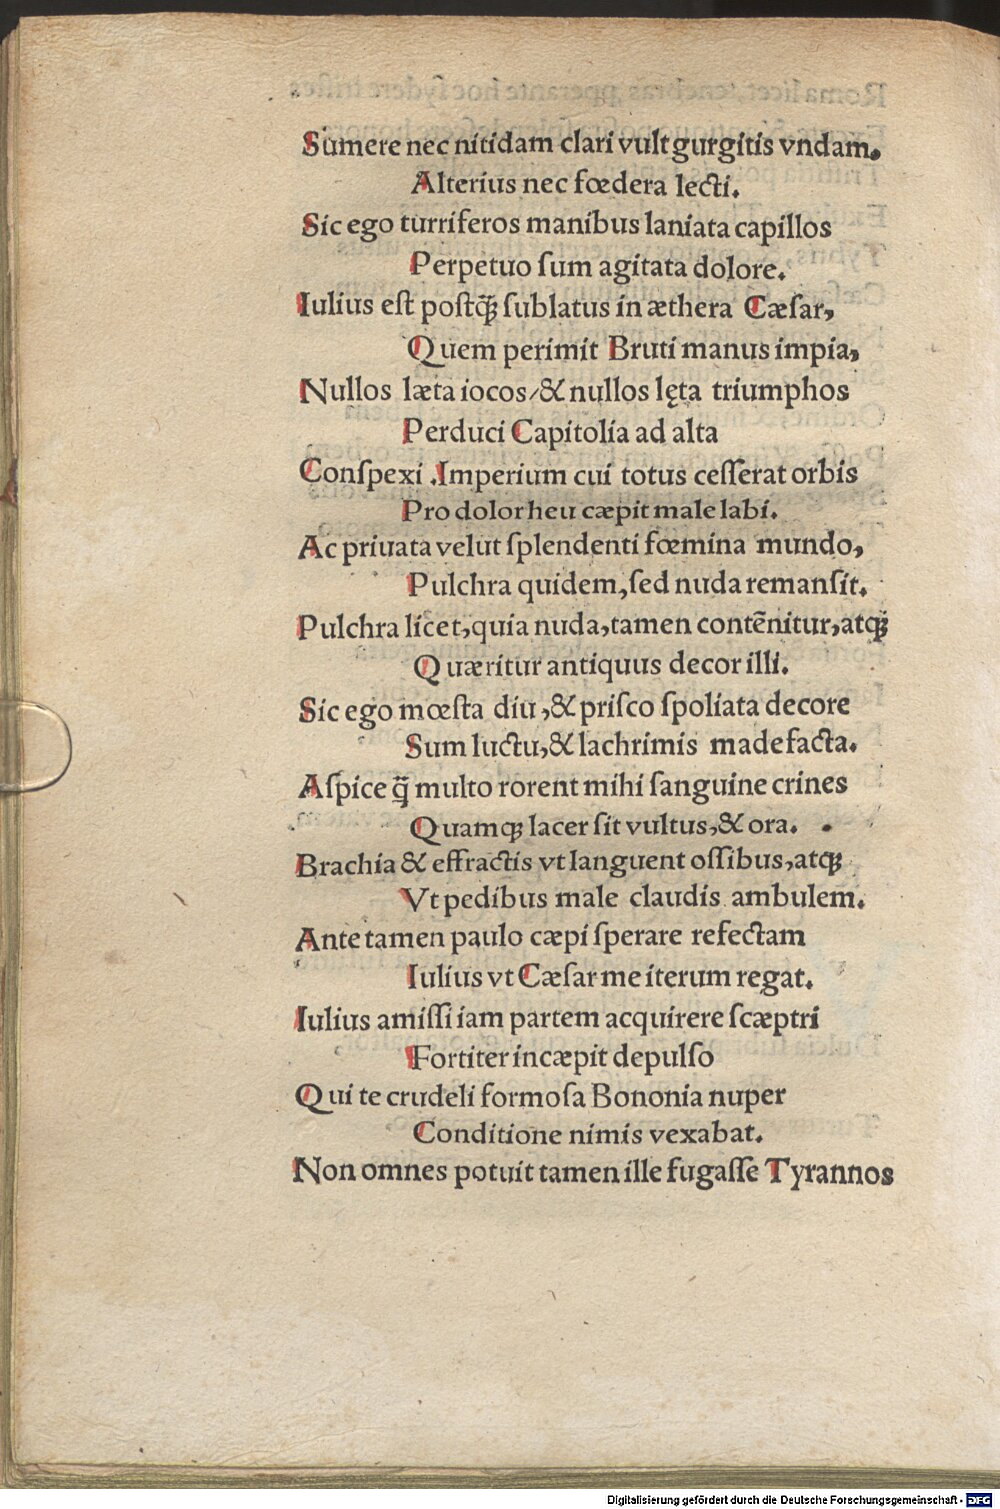 Sumere nec nitidam clari vult gurgitis vndam.
Alterius nec fœdera lecti.
Sic ego turriferos manibus laniata capillos
Perpetuo ſum agitata dolore.
Iulius eſt poſtꝙ̃ ſublatus in æthera Cæſar,
Quem perimit Bruti manus impia,
Nullos læta iocos/& nullos lęta triumphos
Perduci Capitolia ad alta
Conſpexi .Imperium cui totus ceſſerat orbis
Pro dolor heu cæpit male labi.
Ac priuata velut ſplendenti fœmina mundo,
Pulchra quidem, ſed nuda remanſit.
Pulchra licet, quia nuda, tamen contẽnitur, atq̃
Quæritur antiquus decor illi.
Sic ego mœſta diu, & priſco ſpoliata decore
Sum luctu, & lachrimis madefacta.
Aſpice q̃ multo rorent mihi ſanguine crines
Quamꝗ lacer ſit vultus, & ora.
Brachia & effractis vt languent oſſibus, atꝗ
Vt pedibus male claudis ambulem.
Ante tamen paulo cæpi ſperare refectam
Iulius vt Cæſar me iterum regat.
Iulius amiſſi iam partem acquirere ſcæptri
Fortiter incæpit depulſo
Qui te crudeli formoſa Bononia nuper
Conditione nimis vexabat.
Non omnes potuit tamen ille fugaſſe Tyrannos
Digitalisierung gefördert durch die Deutsche Forschungsgemeinschaft - DFG